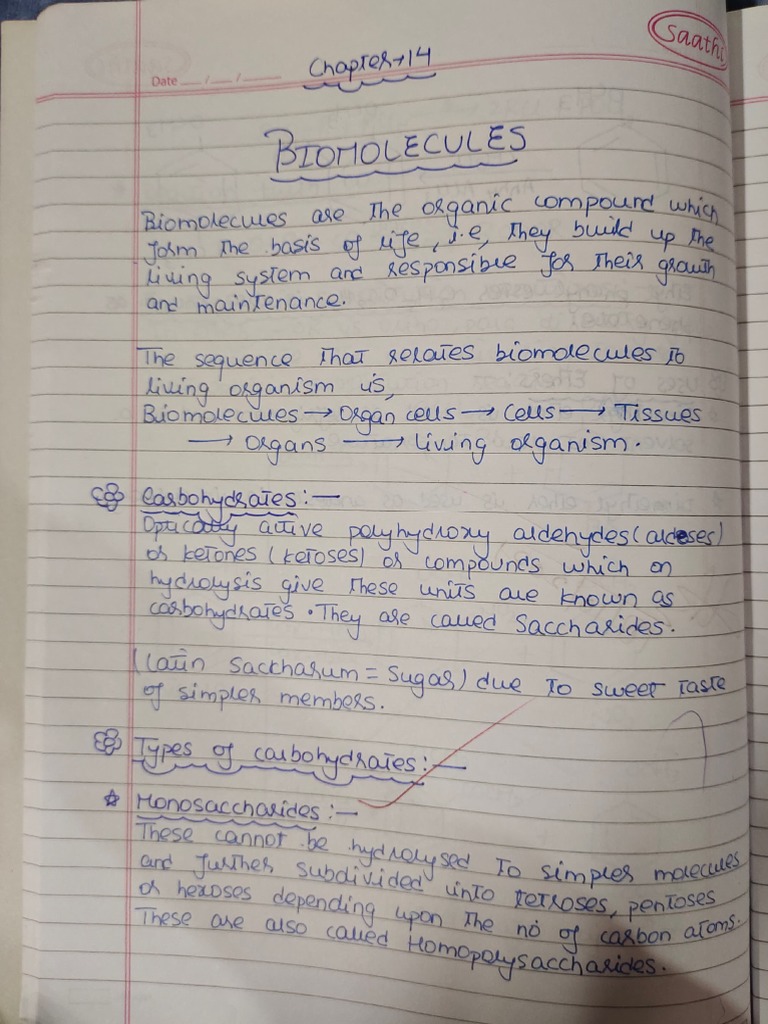 Saathi
Chapter→14
Date __/__/____
BIOMOLECULES
Biomolecules are the organic compound which
form the basis of life, i.e, they build up the
living system and responsible for their growth
and maintenance.
The sequence that relates biomolecules to
living organism is,
Biomolecules → Organ cells → Cells → Tissues
→ Organs → Living organism.
Carbohydrates:—
Optically active polyhydroxy aldehydes (aldoses)
or ketones (ketoses) or compounds which on
hydrolysis give these units are known as
carbohydrates. They are called Saccharides.
(Latin Saccharum = Sugar) due to sweet taste
of simpler members.
Types of carbohydrates:—
☆ Monosaccharides:—
These cannot be hydrolysed to simpler molecules
and further subdivided into tetroses, pentoses
or hexoses depending upon the no of carbon atoms.
These are also called Homopolysaccharides.